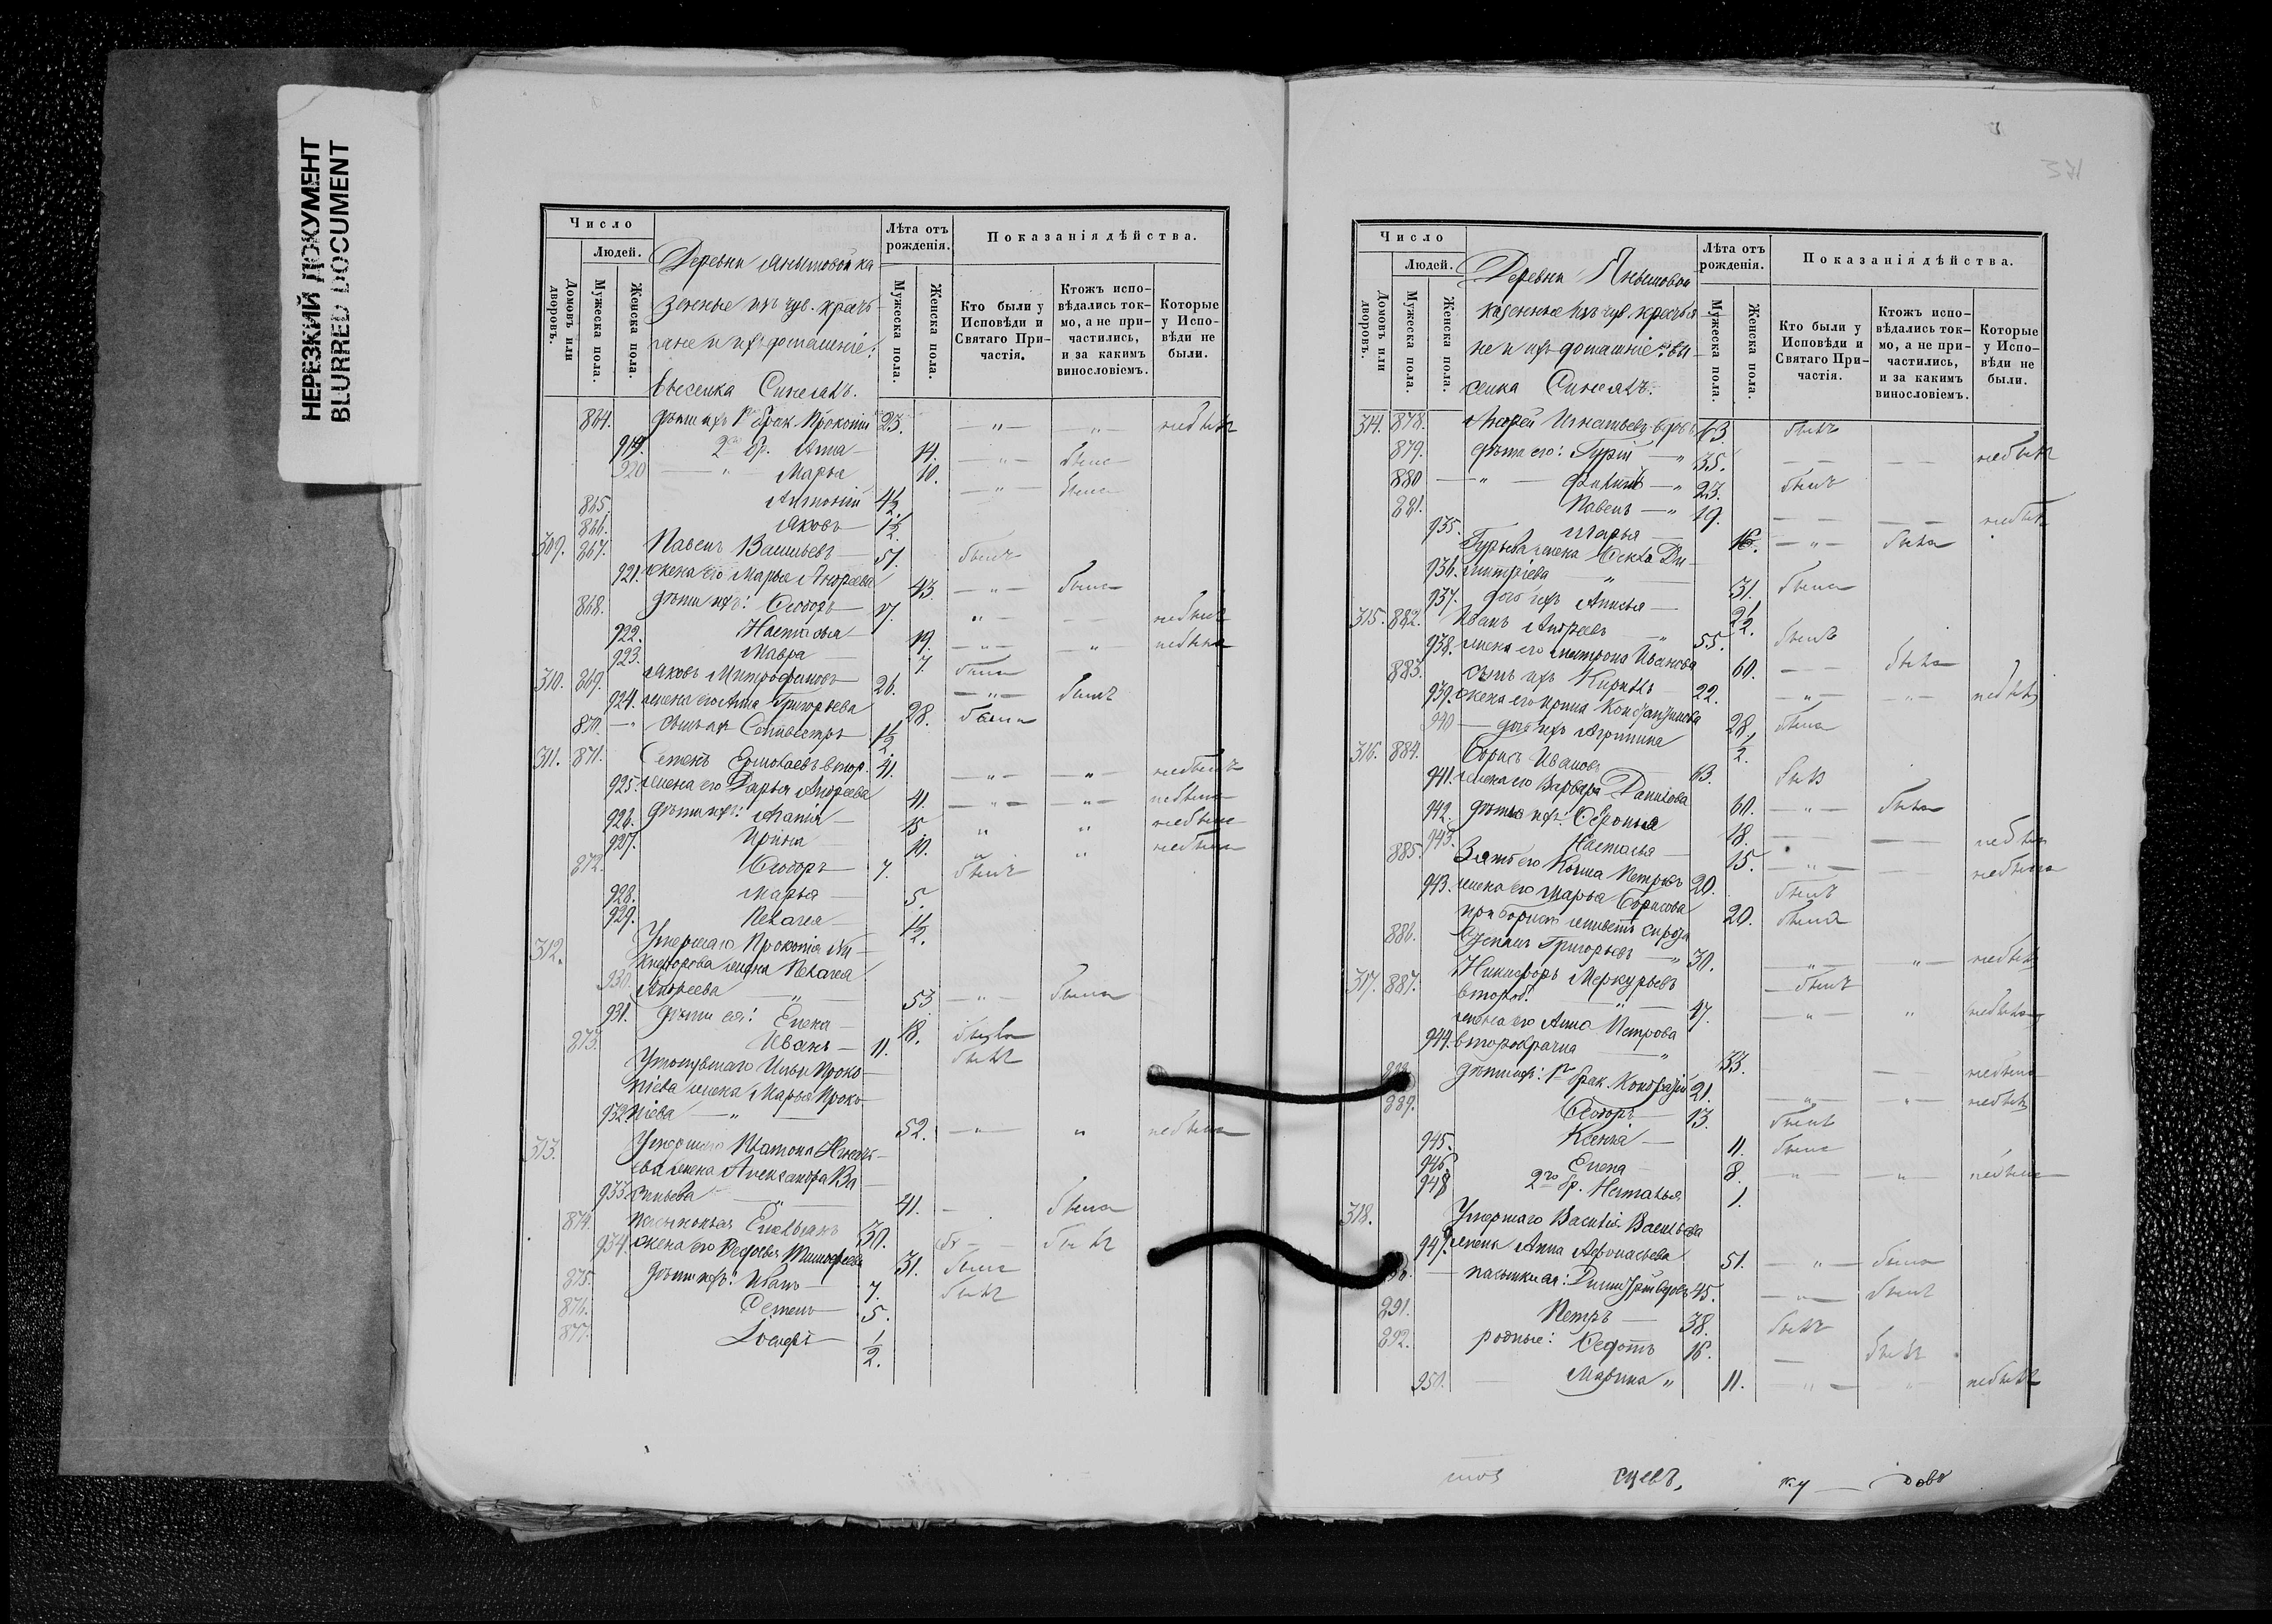 НЕРЕЗКИЙ ДОКУМЕНТ
BLURRED DOCUMENT
Число
Людей.
Домовъ или дворовъ.
Мужеска пола.
Женска пола.
Деревни Янышовой ка
зенные изъ чув. крать
яне и ихъ домашніе:
Выселка Синелахъ.
Лѣта отъ рожденія.
Мужеска пола.
Женска пола.
Показанія дѣйства.
Кто были у Исповѣди и Святаго Причастія.
Ктожъ исповѣдались токмо, а не причастились, и за какимъ винословіемъ.
Которые у Исповѣди не были.
864. дѣти ихъ 1го брак. Прокопій 23. — „ — — „ — небылъ
919. 2го бр. Анна 14. — „ — была
920 — „ Марья 10. — „ — была
865. Антоній 4½.
866. Яковъ 1½
309. 867. Павелъ Васильевъ 57. былъ
921. жена его Марья Андреева 43. — „ — была
868. дѣти ихъ: Ѳеодоръ 17. „ — — небылъ
922. Настасья 19. — „ — — „ небыла
923. Мавра 7. была
310. 869. Яковъ Митрофановъ 26. — „ — былъ
924. жена его Анна Григорьева 28. была
870. — „ сынъ ихъ Селиверстръ 1½
311. 871. Семенъ Ермолаевъ втор. 41. — „ — — „ — небылъ
925. жена его Дарья Андреева 41. — „ — — „ — небыла
926. дѣти ихъ: Манія 15. „ „ небыла
927. Ирина 10. „ „ небыла
872. Ѳеодоръ 7. былъ
928. Марья 5.
929. Пелагея 1½.
312. Умершаго Прокопія Ни
кифорова жена Пелагея
930. Андреева — „ — 53 — „ — была
931. дѣти ея: Елена 18. была
873. Иванъ 11. былъ
Умершаго Ильи Проко
піева жена Марья Проко
932. піева — „ — 52. — „ — „ небыла
313. Умершаго Платона Игнать
ева жена Александра Ва
933. сильева — „ 41. — была
874. пасынокъ ея Емельянъ 30. былъ
934. жена его Ѳедосья Тимофеева 31. была
875. дѣти ихъ: Иванъ 7. былъ
876. Семенъ 5.
877. Іосифъ ½.
371
Число
Людей.
Домовъ или дворовъ.
Мужеска пола.
Женска пола.
Деревни Янышовой
казенные изъ чув. крестья
не и ихъ домашніе: вы
селка Синелахъ.
Лѣта отъ рожденія.
Мужеска пола.
Женска пола.
Показанія дѣйства.
Кто были у Исповѣди и Святаго Причастія.
Ктожъ исповѣдались токмо, а не причастились, и за какимъ винословіемъ.
Которые у Исповѣди не были.
314. 878. Андрей Игнатьевъ вдовъ 63. былъ
879. дѣти его: Гурій — „ 35. — — — — небылъ
880 — „ — Филипъ — „ 23. былъ
881. Павелъ — „ 19. — — — — небылъ
935. Марья 16. — „ — была
Гурьева жена Ѳекла Ди
936. митріева „ 31. была
937. дочь ихъ Анисья 2½.
315. 882. Иванъ Андреевъ „ 55. былъ
938. жена его Матрона Иванова 60. — — была
883. сынъ ихъ Кирилъ 22. — „ — — „ — небылъ
939. жена его Ирина Константинова 28. была
940 — дочь ихъ Агрипина ½.
316. 884. Борисъ Ивановъ 63. былъ
941. жена его Варвара Данилова 60. — „ — была
942. дѣти ихъ: Ѳевронья 18. — — — — небыла
943. Настасья 15. — „ — — — небыла
885. Зять его Козма Петровъ 20. былъ
943. жена его Марья Борисова 20. была
при Борисѣ живетъ сирота
886. Григорьевъ — „ 30. — „ — „ — небылъ
317. 887. Никифоръ Меркурьевъ — былъ
второб. „ 47. — „ — „ небыла
жена его Анна Петрова
944. второбрачна „ 33. — небыла
888. дѣти ихъ: 1го брак. Кондратій 21. — „ — — „ — небылъ
889. Ѳеодоръ 13. былъ
945. Ксенія 11. была
946. Елена 8. „ — „ — небыла
948 2го бр. Наталья 1.
318. Умершаго Василія Васильева
949. жена Анна Афонасьева 51. — „ — была
890. — пасынки ея: Димитрій вдовъ 45. — „ — былъ
891. Петръ — 38. былъ
892. родные: Ѳедотъ 16. — былъ
950. — Марина „ 11. — „ — — „ — небыла
шовъ сцевъ, ку — довъ